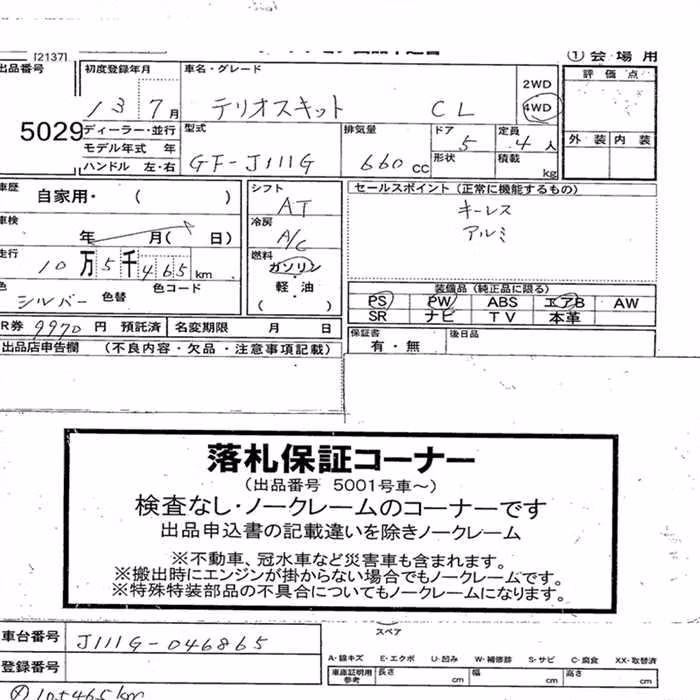 [2137]
① 会 場 用
出品番号
5029
初度登録年月
13 7月
車名・グレード
テリオスキット CL
2WD
4WD
評 価 点
外 装 内 装
ディーラー・並行
モデル年式 年
ハンドル 左・右
型式
GF-J111G
排気量
660 cc
ドア
5
形状
定員
4 人
積載
kg
車歴
自家用・ ( )
車検
年 月( 日)
走行
10 万 5 千 465 km
色
シルバー
色替
色コード
R券 9970 円 預託済
名変期限 月 日
シフト
AT
冷房
A/C
燃料
ガソリン
軽・油
( )
セールスポイント (正常に機能するもの)
キーレス
アルミ
装備品 (純正品に限る)
PS PW ABS エアB AW
SR ナビ TV 本革
保証書
有・無
後日品
出品店申告欄 (不良内容・欠品・注意事項記載)
落札保証コーナー
(出品番号 5001号車～)
検査なし・ノークレームのコーナーです
出品申込書の記載違いを除きノークレーム
※不動車、冠水車など災害車も含まれます。
※搬出時にエンジンが掛からない場合でもノークレームです。
※特殊特装部品の不具合についてもノークレームになります。
車台番号 J111G-046865
登録番号
スペア
A・線キズ E・エクボ U・凹み W・補修跡 S・サビ C・腐食 XX・取替済
車庫証明用
参考
長さ cm 幅 cm 高さ cm
105465km